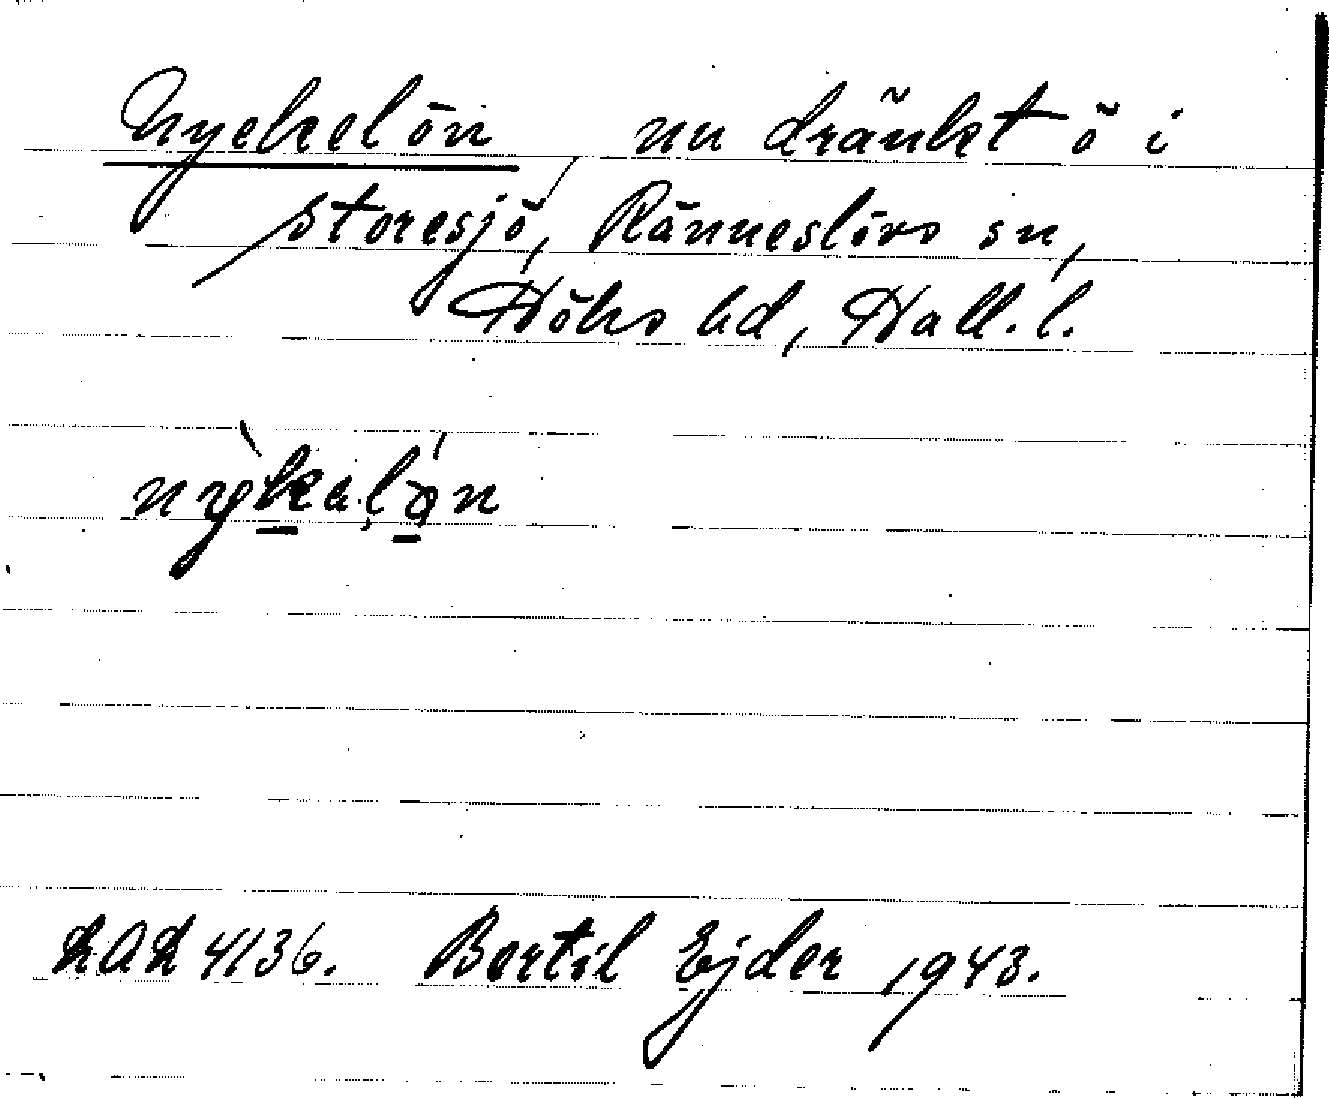 Nyckelön, nu dränkt ö i
Storesjö, Ränneslövs sn,
Höks hd, Hall. l.
nỳkalǿn
LAL 4136. Bertil Ejder 1943.